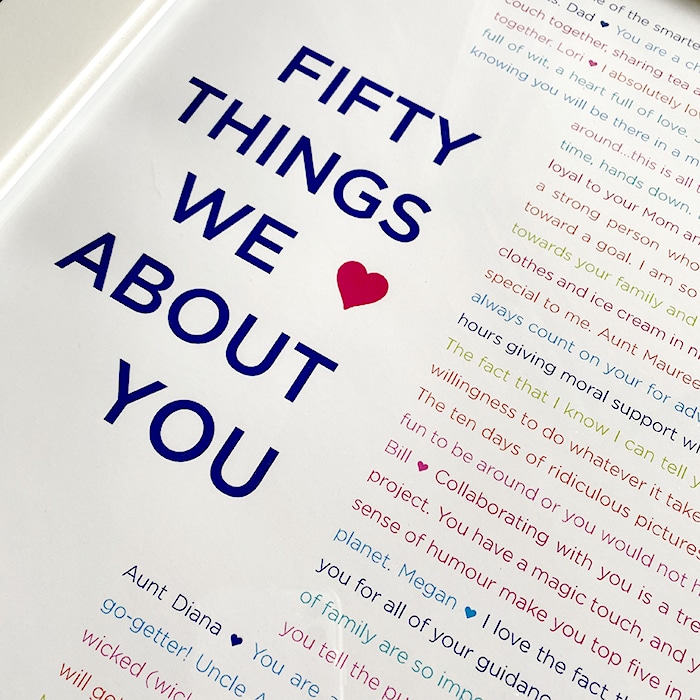 FIFTY
THINGS
WE ♥
ABOUT
YOU
of the smarte
Dad ♥ You are a ch
couch together, sharing tea a
together. Lori ♥ I absolutely l
full of wit, a heart full of love
knowing you will be there in a m
around...this is all
time, hands down.
loyal to your Mom an
a strong person who
toward a goal. I am so
towards your family and
clothes and ice cream in
special to me. Aunt Mauree
always count on your for adv
hours giving moral support w
The fact that I know I can tell y
willingness to do whatever it take
The ten days of ridiculous pictures
fun to be around or you would not h
Bill ♥ Collaborating with you is a tre
project. You have a magic touch, and y
sense of humour make you top five i
planet. Megan ♥ I love the fact th
you for all of your guidanc
of family are so impo
you tell the pu
Aunt Diana ♥ You are a
go-getter! Uncle A
wicked (wick
will get